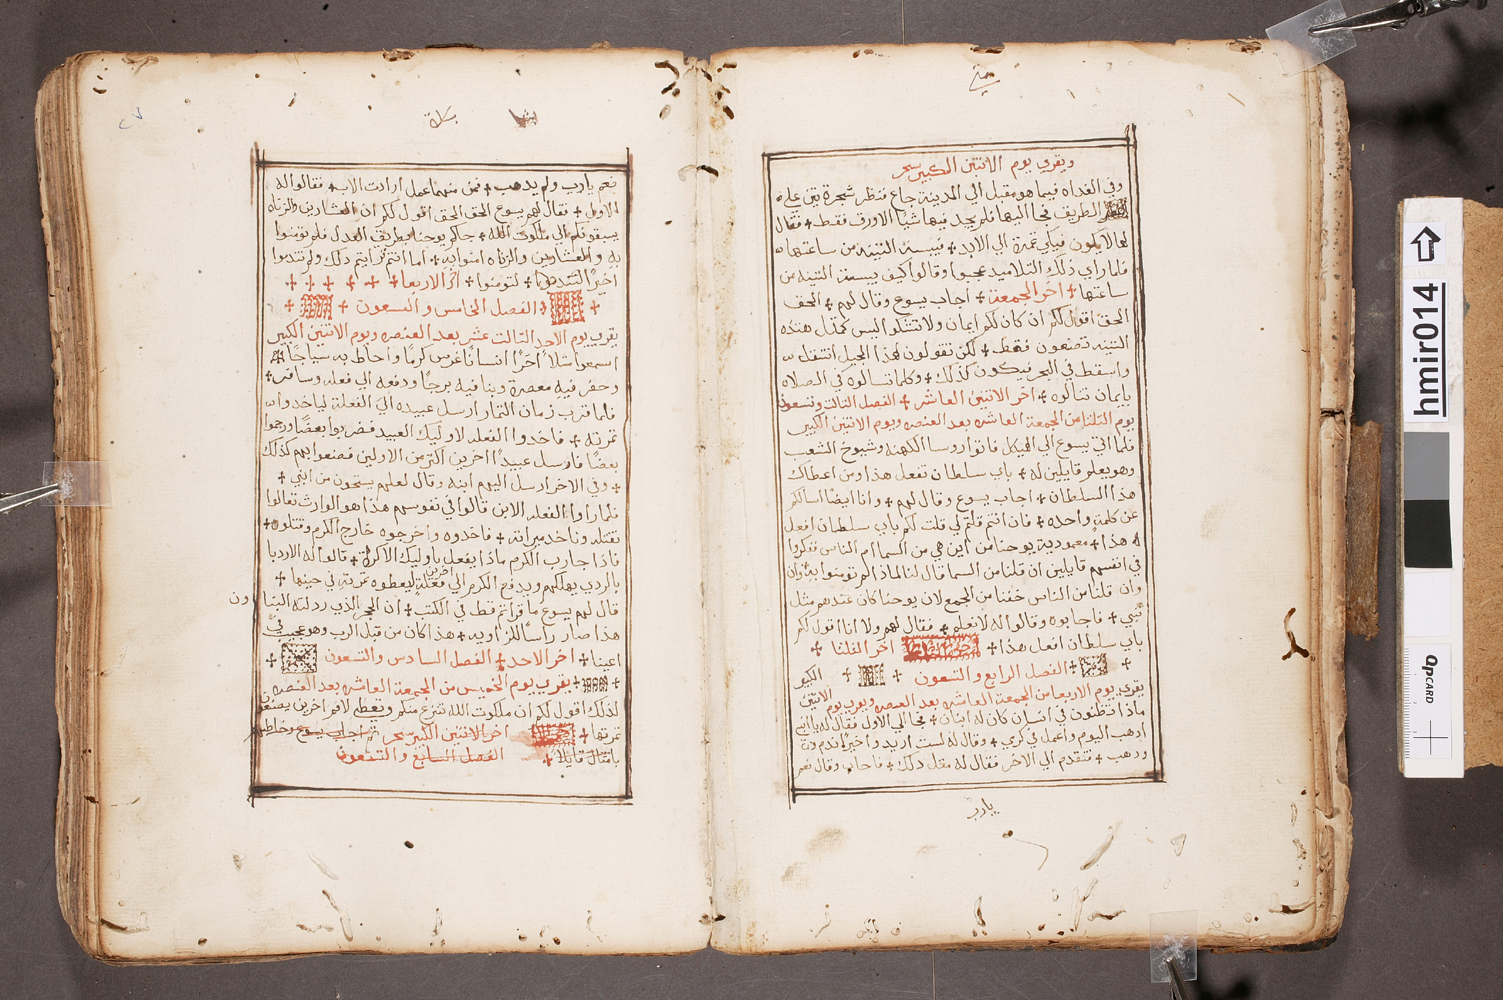 ويقري يوم الاثنين الكبير سحر
وفي الغداه فيما هو مقبل الي المدينه جاع فنظر شجرة تين علي
الطريق فجا اليها فلم يجد فيها شيا الا ورق فقط + فقال
لها لا يكون فيكي ثمرة الي الابد + فيبست التينه من ساعتها
فلما راي ذلك التلاميذ عجبوا وقالوا كيف يبست التينه من
ساعتها + اخر الجمعة + اجاب يسوع وقال لهم + الحق
الحق اقول لكم ان كان لكم ايمان ولا تشكوا ليس كمثل هذه
التينه تصنعون فقط + لكن تقولون لهذا الجبل انتقل
واسقط في البحر فيكون كذلك + وكلما تسالوه في الصلاه
بايمان تنالوه + اخر الاثنين العاشر + الفصل الثالث وتسعون
يوم الثلثا من الجمعة العاشره بعد العنصره ويوم الاثنين الكبير
فلما اتي يسوع الي الهيكل فاتوا روسا الكهنه وشيوخ الشعب
وهو يعلم قايلين له + باي سلطان تفعل هذا ومن اعطاك
هذا السلطان + اجاب يسوع وقال لهم + وانا ايضا اسالكم
عن كلمة واحده + فان انتم قلتم لي قلت لكم باي سلطان افعل
هذا + معمودية يوحنا من اين هي من السما ام الناس ففكروا
في انفسهم قايلين ان قلنا من السما قال لنا لماذا لم تومنوا به
وان قلنا من الناس خفنا من الجمع لان يوحنا كان عندهم مثل
نبي + فاجابوه وقالوا له لا نعلم + فقال لهم ولا انا اقول لكم
باي سلطان افعل هذا + اخر الثلثا +
+ الفصل الرابع والتسعون + + الكبير
يقري يوم الاربعا من الجمعة العاشره بعد العنصره ويوم الاثنين
ماذا تظنون في انسان كان له ابنان + فجا الي الاول فقال له يا ابني
اذهب اليوم واعمل في كرمي + وقال له لست اريد واخيرا ندم
وذهب + فتقدم الي الاخر فقال له مثل ذلك + فاجاب وقال نعم
يارب
نعم يارب ولم يذهب + فمن منهما عمل ارادت الاب + فقالوا له
الاول + فقال لهم يسوع الحق الحق اقول لكم ان العشارين والزناه
يسبقونكم الي ملكوت الله + جاكم يوحنا بطريق العدل فلم تومنوا
به والعشارين والزناه امنوا به + اما انتم فرايتم ذلك ولم تندموا
اخرا لتومنوا + اخر الاربعا + + + + +
+ + الفصل الخامس والتسعون + +
يقري يوم الاحد الثالث عشر بعد العنصره ويوم الاثنين الكبير
اسمعوا مثلا اخرا انسانا غرس كرما واحاط به سياجا
وحفر فيه معصرة وبنا فيه برجا ودفعه الي فعله وسافر +
فلما قرب زمان الثمار ارسل عبيده الي الفعلة لياخدوا
ثمرته + فاخدوا الفعله لاوليك العبيد فضربوا بعضا ورجموا
بعضا فارسل عبيدا اخرين اكثر من الاولين فصنعوا بهم كذلك
+ وفي الاخر ارسل اليهم ابنه وقال لعلهم يستحون من ابني +
فلما راوا الفعله الابن قالوا في نفوسهم هذا هو الوارث تعالوا
نقتله وناخد ميراثه + فاخدوه واخرجوه خارج الكرم وقتلوه +
فاذا جا رب الكرم ماذا يفعل باوليك الاكرة + قالوا له الارديا
بالردي يهلكهم ويدفع الكرم الي فعلة اخرين ليعطوه ثمرته في حينها +
قال لهم يسوع ما قراتم قط في الكتب + ان الحجر الذي رذلته البنا
ون
هذا صار راسا للزاويه + هذا كان من قبل الرب وهو عجيب في
اعيننا + اخر الاحد + الفصل السادس والتسعون +
+ يقري يوم الخميس من الجمعة العاشره بعد العنصره
لذلك اقول لكم ان ملكوت الله تنزع منكم وتعطا لاخرين يصنعوا
ثمرتها + اخر الاثنين الكبير سحر ثم اجاب يسوع وخاطبهم
بامثال قايلا + الفصل السابع والتسعون